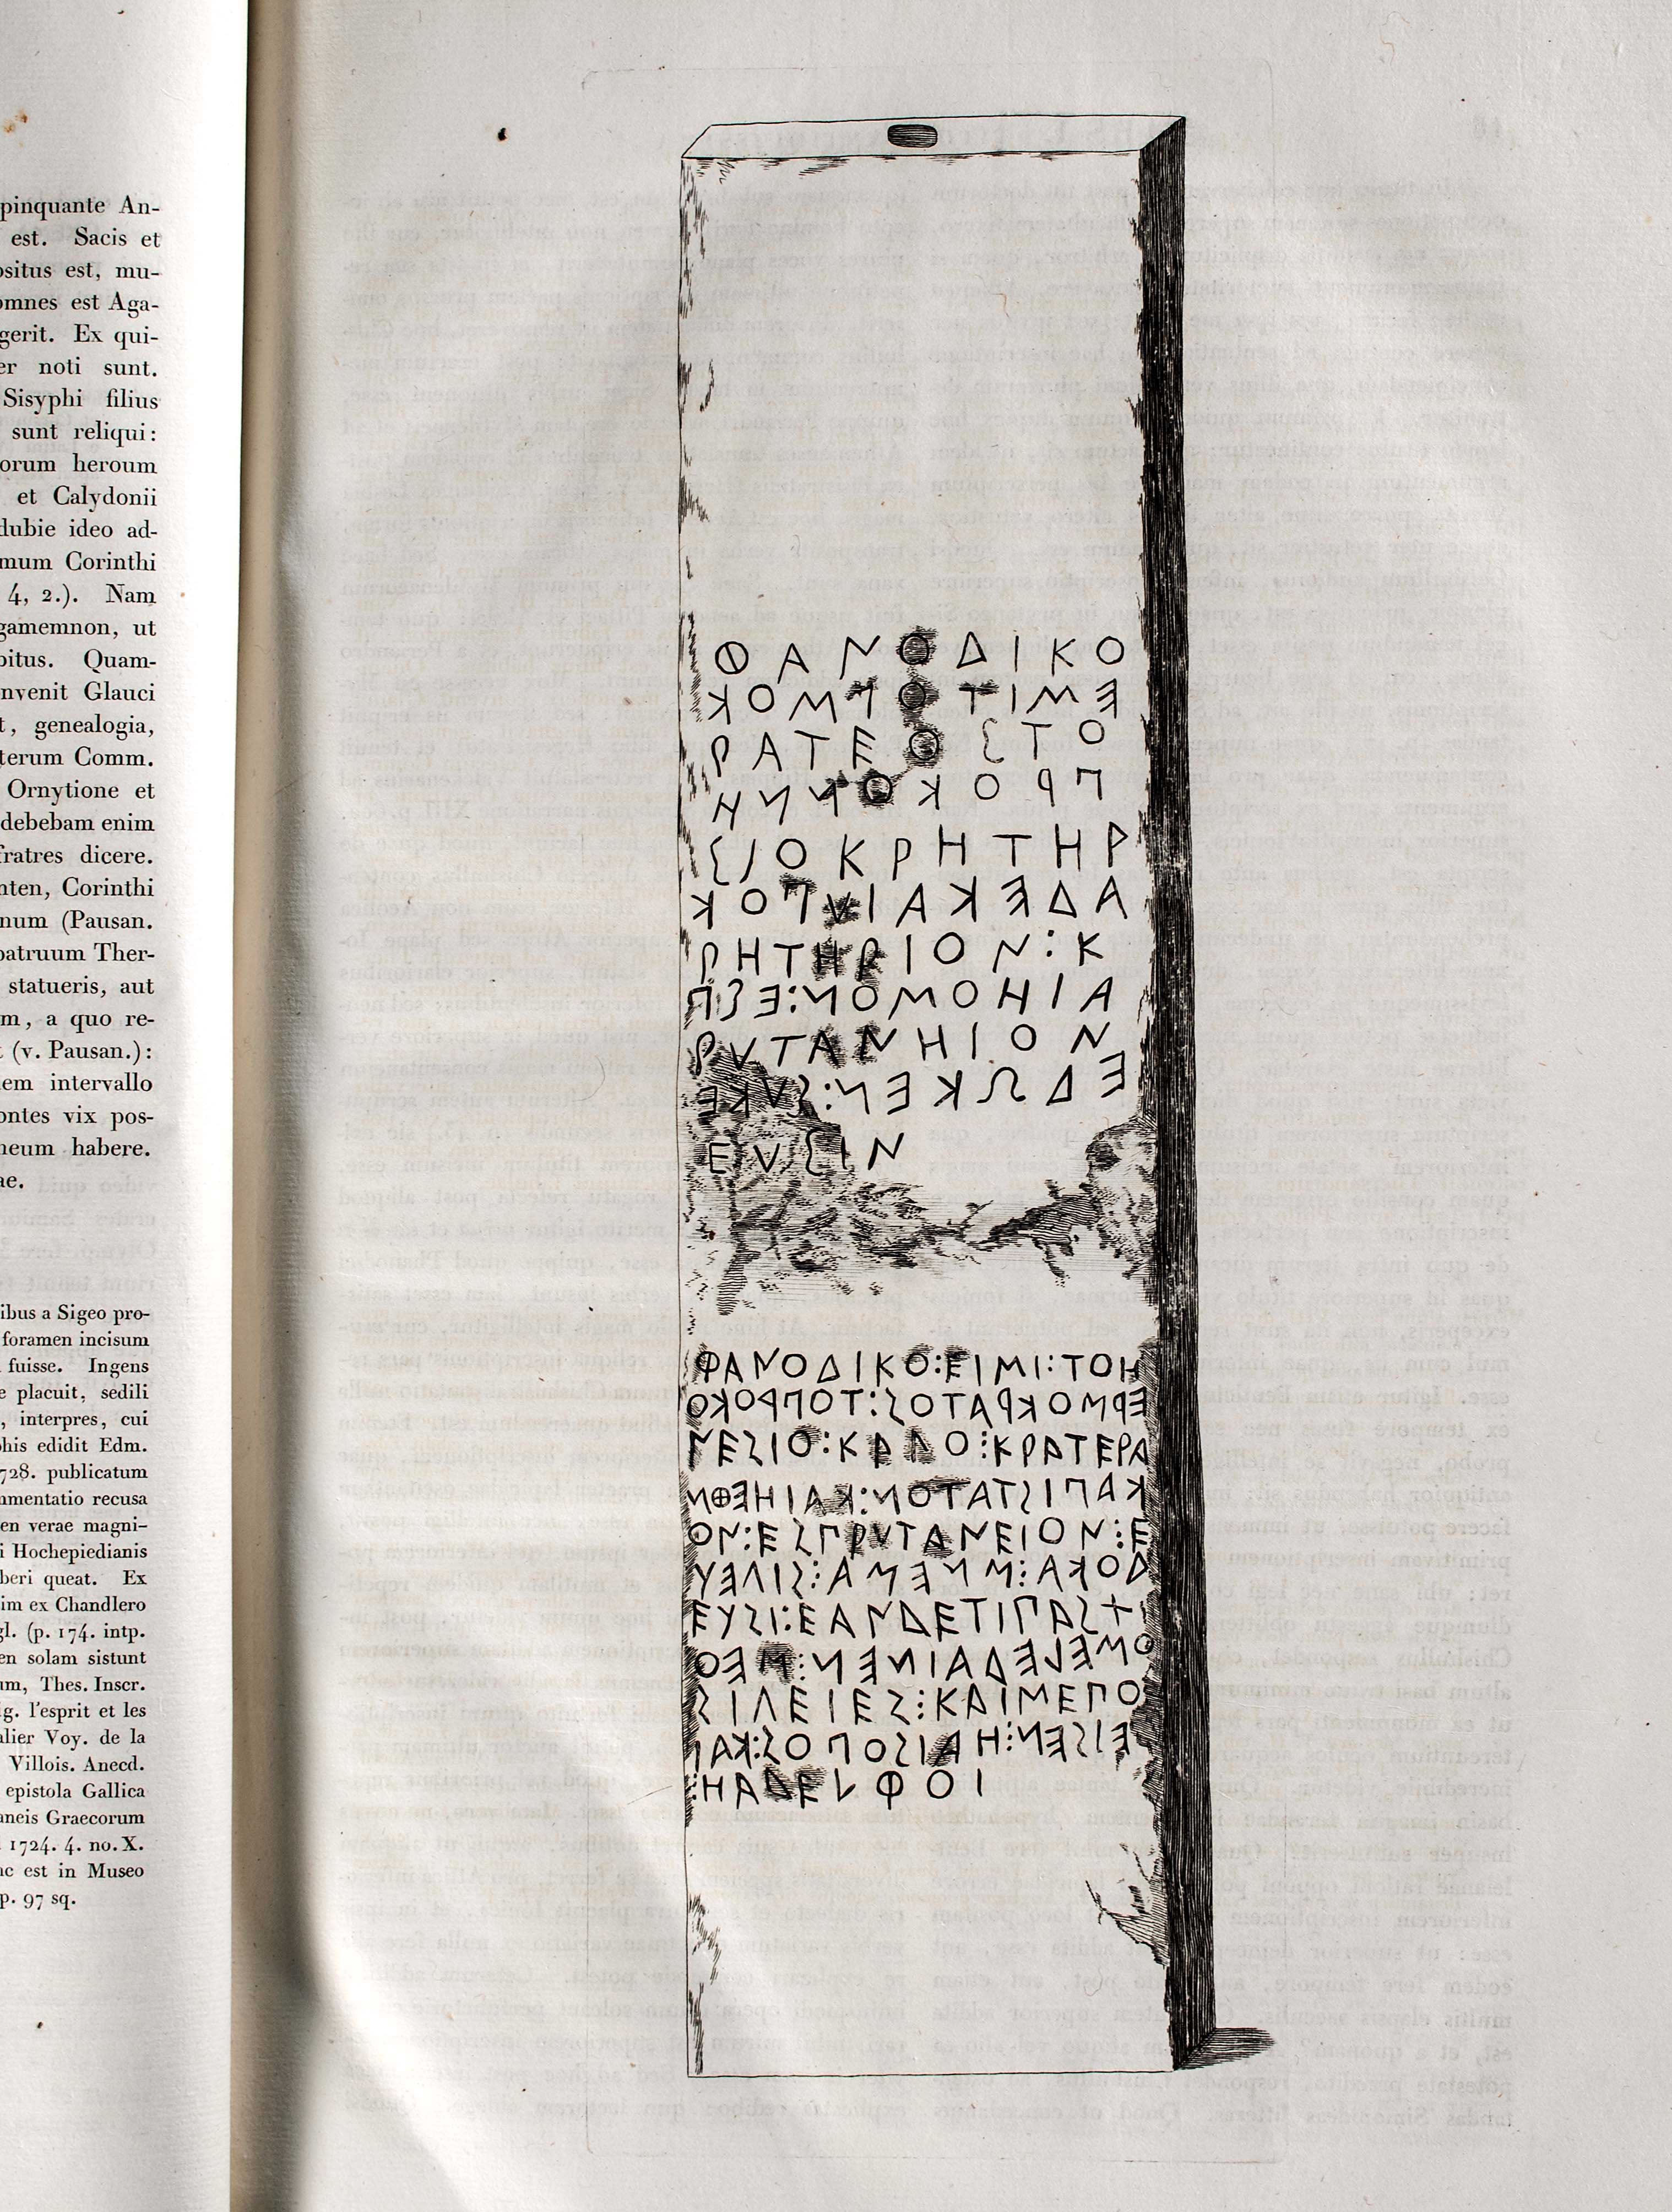 pinquante An-
est. Sacis et
ositus est, mu-
omnes est Aga-
gerit. Ex qui-
er noti sunt.
Sisyphi filius
sunt reliqui:
orum heroum
et Calydonii
dubie ideo ad-
mum Corinthi
4, 2.). Nam
gamemnon, ut
bitus. Quam-
nvenit Glauci
t, genealogia,
terum Comm.
Ornytione et
debebam enim
fratres dicere.
nten, Corinthi
num (Pausan.
patruum Ther-
statueris, aut
m, a quo re-
t (v. Pausan.):
dem intervallo
ontes vix pos-
neum habere.
ae.
ibus a Sigeo pro-
foramen incisum
fuisse. Ingens
e placuit, sedili
, interpres, cui
phis edidit Edm.
728. publicatum
mmentatio recusa
en verae magni-
i Hochepiedianis
beri queat. Ex
im ex Chandlero
gl. (p. 174. intp.
en solam sistunt
um, Thes. Inscr.
g. l'esprit et les
alier Voy. de la
Villois. Anecd.
epistola Gallica
aneis Graecorum
1724. 4. no. X.
nc est in Museo
p. 97 sq.
ΦΑΝΟΔΙΚΟ
ΕΜΙΤΟΡΜΟΚ
ΡΑΤΕΟΣΤΟ
ΠΡΟΚΟΝΝΗ
ΣΙΟΚΡΗΤΗΡ
ΑΔΕΚΑΙΥΠΟΚ
ΡΗΤΗΡΙΟΝ:Κ
ΑΙΗΟΜΟΝ:ΕΣΠ
ΡΥΤΑΝΗΙΟΝ
ΕΔΩΚΕΝ:ΣΥΚΕ
ΕΥΣΙΝ
ΦΑΝΟΔΙΚΟ:ΕΙΜΙ:ΤΟΗ
ΕΡΜΟΚΡΑΤΟΣ:ΤΟΠΡΟΚΟ
ΝΕΣΙΟ:ΚΑΓΟ:ΚΡΑΤΕΡΑ
ΚΑΠΙΣΤΑΤΟΝ:ΚΑΙΗΕΘΜ
ΟΝ:ΕΣΠΡΥΤΑΝΕΙΟΝ:Ε
ΔΟΚΑ:ΜΝΕΜΑ:ΣΙΓΕΥ
ΕΥΣΙ:ΕΑΝΔΕΤΙΠΑΣΧ
ΟΜΕΛΕΔΑΙΝΕΝ:ΜΕΟ
ΣΙΓΕΙΕΣ:ΚΑΙΜΕΠΟ
ΕΙΣΕΝ:ΗΑΙΣΟΠΟΣ:ΚΑΙ
:ΗΑΔΕΛΦΟΙ